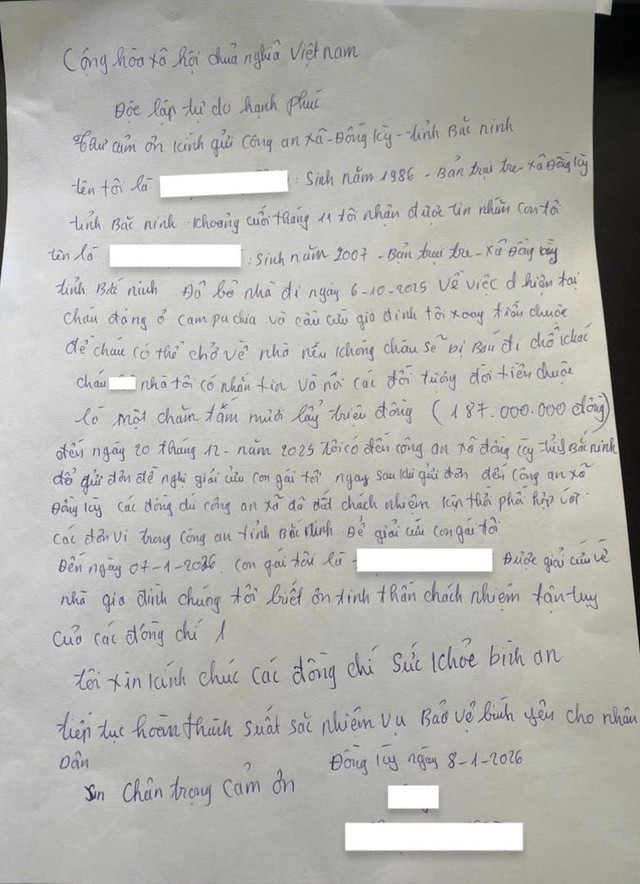 Cộng hòa xã hội chủa nghĩa Việt nam
Độc lập tự do hạnh phúc
Thư cảm ơn kính gửi Công an xã - Đồng Kỳ - tỉnh Bắc ninh
tên tôi là : Sinh năm 1986 - Bản trại tre - xã Đồng Kỳ
tỉnh Bắc ninh khoảng cuối tháng 11 tôi nhận được tin nhắn con tôi
tên là : sinh năm 2007 - Bản trại tre - xã Đồng Kỳ
tỉnh Bắc ninh Đã bỏ nhà đi ngày 6-10-2025 Về việc hiện tại
cháu đang ở cam pu chia và cầu cứu gia đình tôi xoay tiền chuộc
để cháu có thể chở về nhà nếu không cháu sẽ bị Bán đi chỗ khác
cháu nhà tôi có nhắn tin và nói các đối tượng đòi tiền chuộc
là một chăm tám mươi bẩy triệu đồng (187.000.000 đồng)
đến ngày 20 tháng 12 - năm 2025 tôi có đến công an xã đồng kỳ tỉnh Bắc ninh
để gửi đơn đề nghị giải cứu con gái tôi ngay sau khi gửi đơn đến công an xã
Đồng kỳ các đồng chí công an xã đã chách nhiệm kịp thời phối hợp với
các đơn vị trong công an tỉnh Bắc ninh Để giải cứu con gái tôi
Đến ngày 07-1-2026 con gái tôi là Được giải cứu về
nhà gia đình chúng tôi biết ơn tinh thần chách nhiệm tận tụy
của các đồng chí
tôi xin kính chúc các đồng chí sức khỏe bình an
tiếp tục hoàn thành suất sắc nhiệm vụ Bảo vệ bình yên cho nhân
Dân
Đồng kỳ ngày 8-1-2026
Xin chân trọng cảm ơn